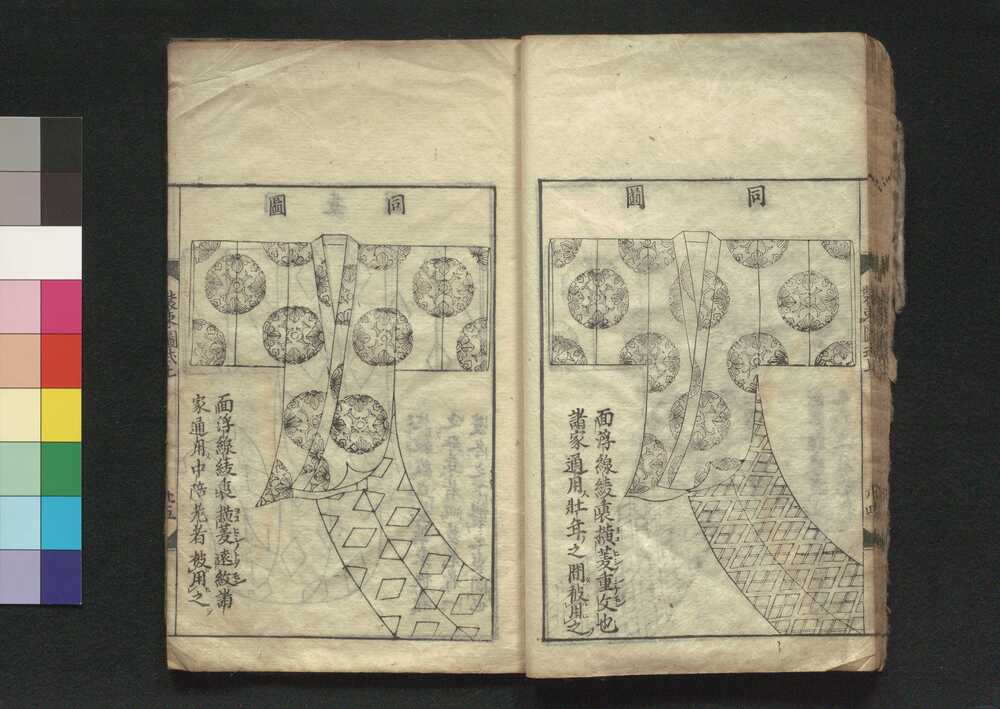 同圖
面浮線綾裏橫菱重文也
諸家通用壯年之間被用之
同圖
面浮線綾裏橫菱遠紋諸
家通用中陪老者被用之
裝束圖式上
廿五